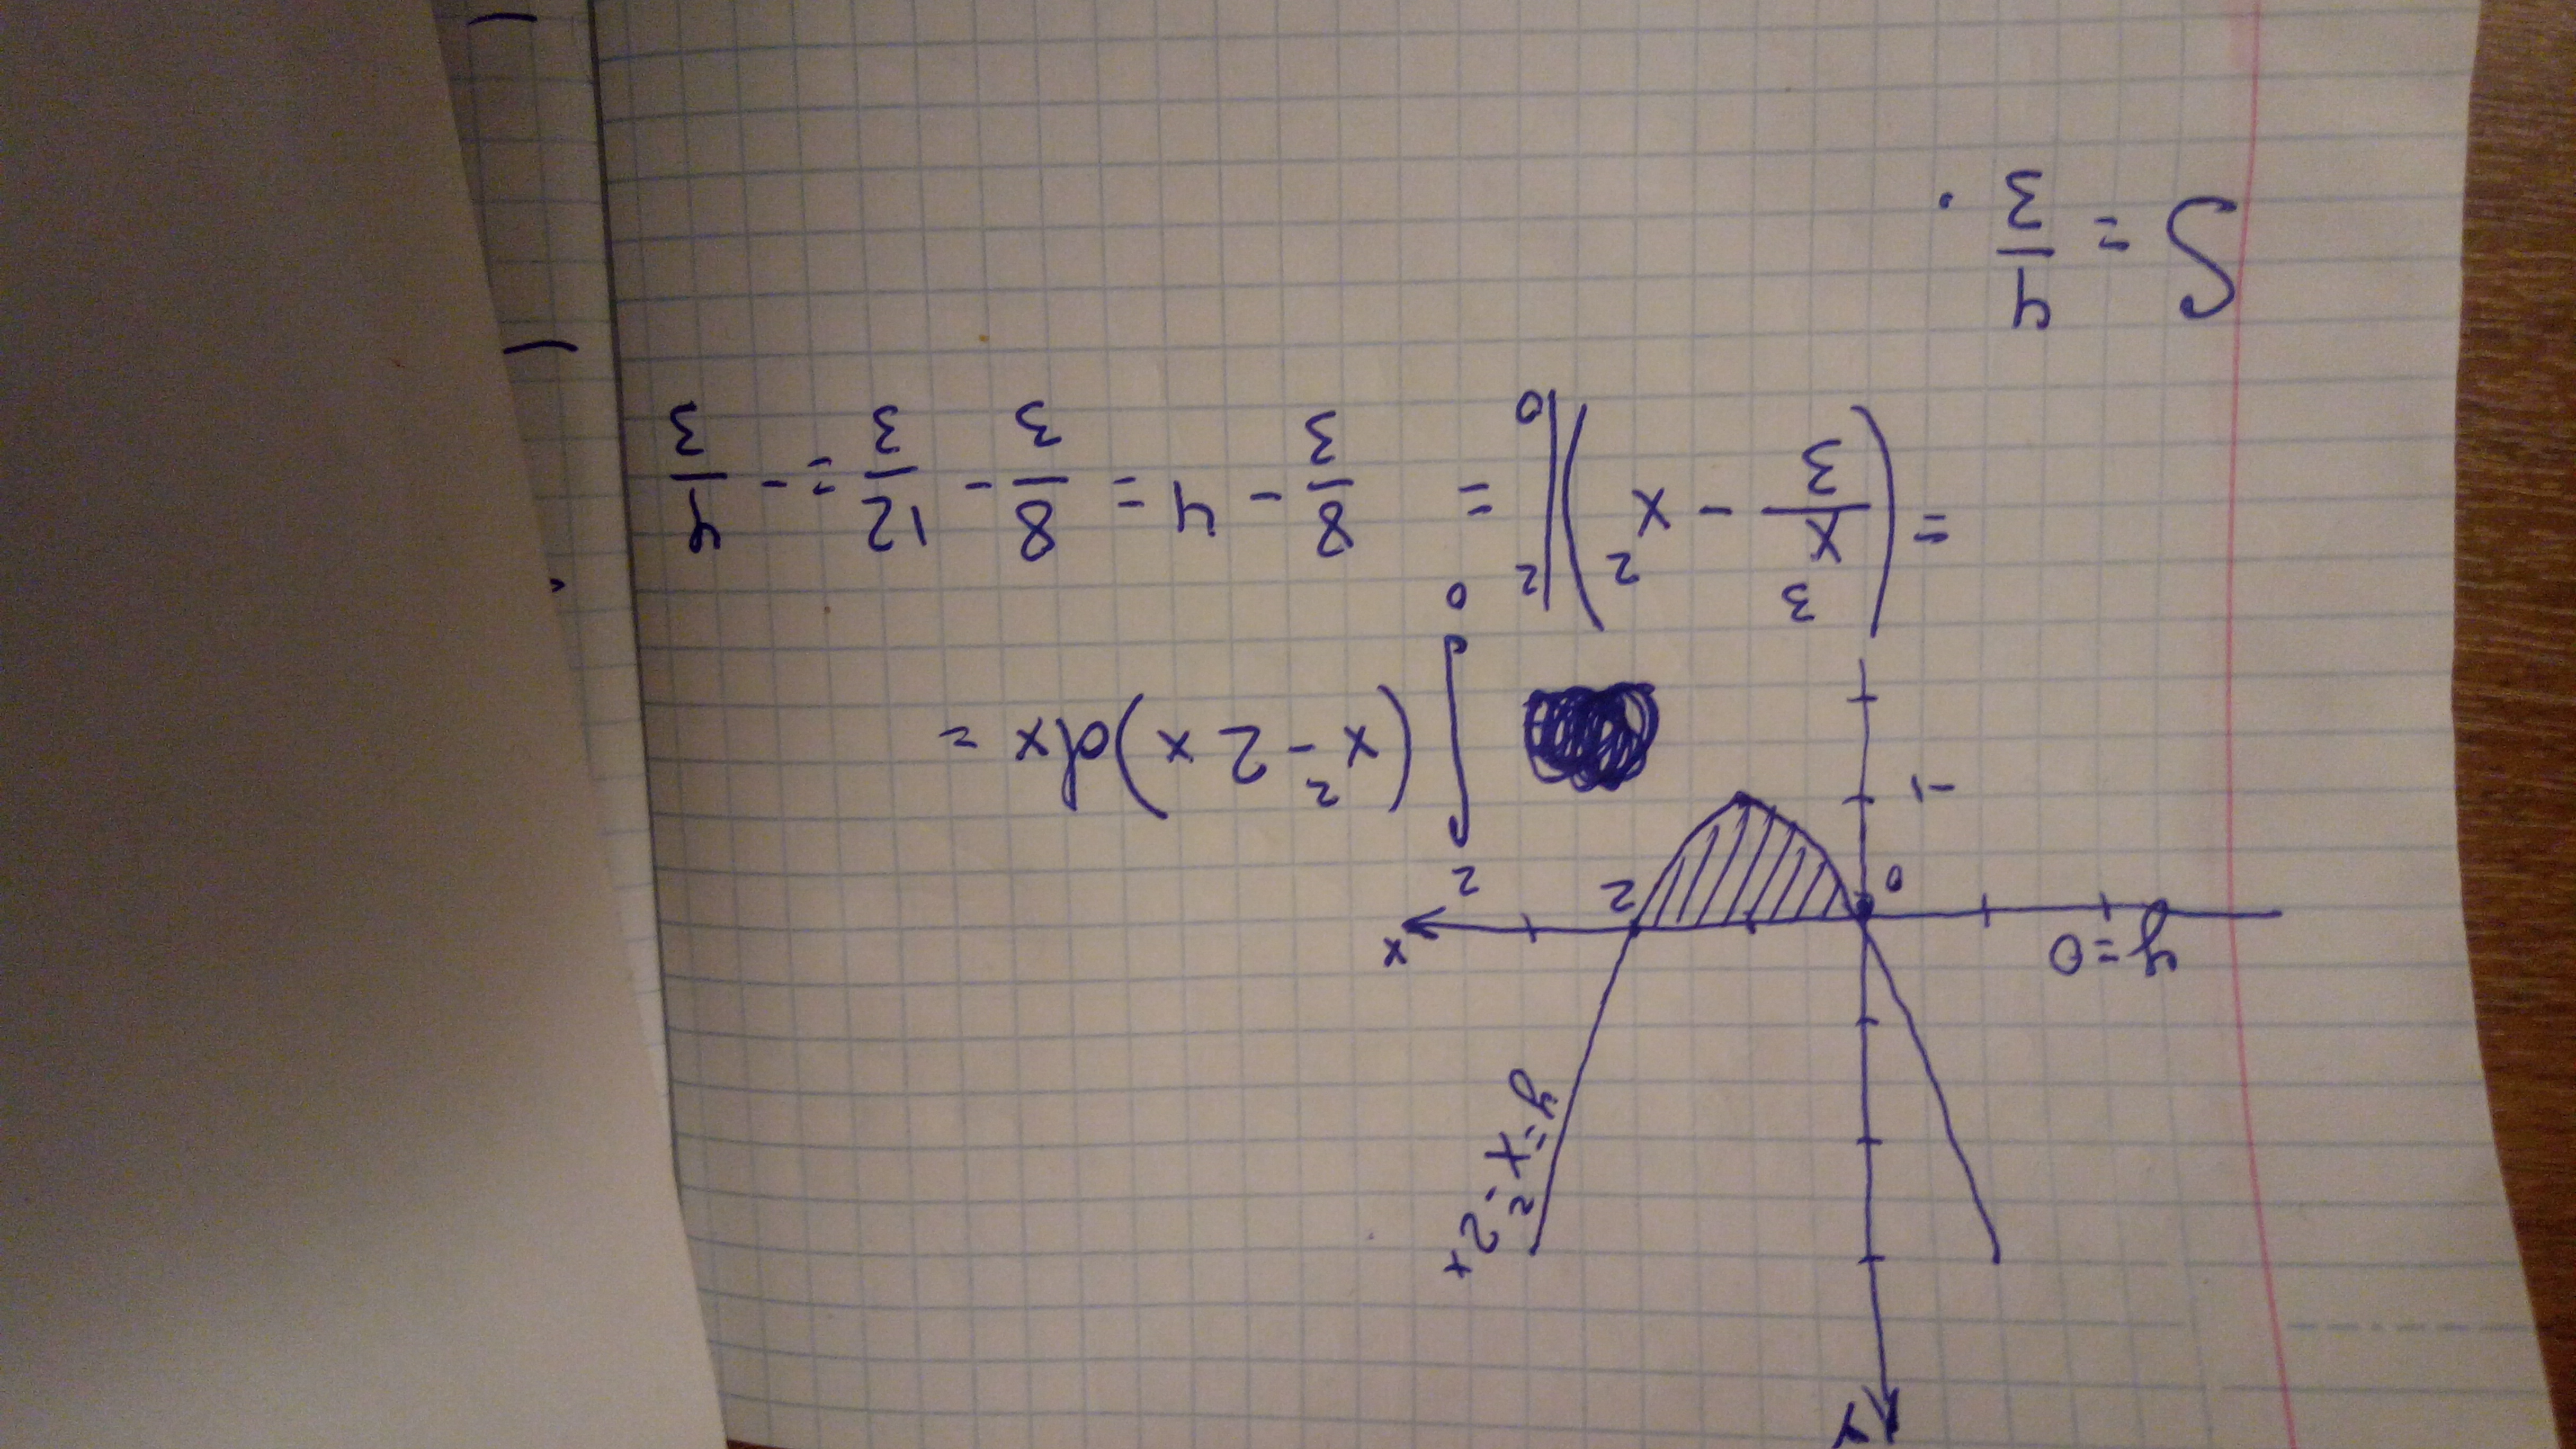 y
y=x²-2x
y=0
0
2
x
-1
∫₀² (x²-2x)dx =
= (x³/3 - x²)|₀² = 8/3 - 4 = 8/3 - 12/3 = - 4/3
S = 4/3.